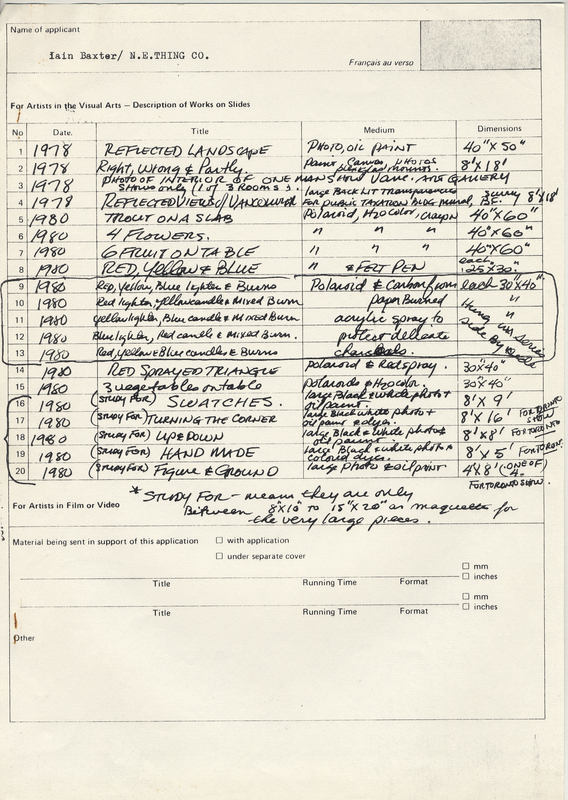 Name of applicant
Iain Baxter/ N.E.THING CO.
Français au verso
For Artists in the Visual Arts — Description of Works on Slides
No Date. Title Medium Dimensions
1 1978 REFLECTED LANDSCAPE PHOTO, OIL PAINT 40"X50"
2 1978 Right, Wrong & Partly. Paint, Canvas, PHOTOS 8'X18'
3 1978 PHOTO OF INTERIOR OF ONE MAN SHOW VANC. ART GALLERY
SHOWS only (1 of 3 ROOMS).
4 1978 REFLECTED VIEWS/VANCOUVER large BACK LIT Transparencies
FOR PUBLIC TAXATION BLDG Mural, B.C. 8'X18'
5 1980 TROUT ON A SLAB Polaroid, H2O color, crayon 40"X60"
6 1980 4 FLOWERS. " " 40"X60"
7 1980 6 FRUIT ON TABLE " " 40"X60"
8 1980 RED, Yellow & BLUE " & FELT PEN each 25X30"
9 1980 Red, Yellow, Blue lighter & Burns Polaroid & Carbon from each 30"X40"
10 1980 Red lighter, Yellow candle & Mixed Burn paper Burned "
11 1980 Yellow lighter, Blue candle & Mixed Burn acrylic spray to "
12 1980 Blue lighter, Red candle & Mixed Burn. protect delicate
13 1980 Red, Yellow & Blue candles & Burns
hung in series side by side
14 1980 RED SPRAYED TRIANGLE Polaroid & Red spray. 30"X40"
15 1980 3 vegetables on table Polaroids & H2O color. 30"X40"
16 1980 (STUDY FOR) SWATCHES. large Black & white photo + oil paint. 8' X 9'
17 1980 (STUDY FOR) TURNING THE CORNER large Black white photo + oil paint & dyes. 8' X 16' FOR TORONTO SHOW
18 1980 (STUDY FOR) UP & DOWN large Black & White photo & oil paint 8'X8' FOR TORONTO
19 1980 (STUDY FOR) HAND MADE large Black & white photo & colored dyes. 8' X 5' FOR TORON.
20 1980 (STUDY FOR) FIGURE & GROUND large photo & oil paint 4'X8' (ONE OF) 4
FOR TORONTO SHOW.
* STUDY FOR - means they are only
For Artists in Film or Video
Between 8"X10" to 15"X20" as maquettes for
the very large pieces.
Material being sent in support of this application ☐ with application
☐ under separate cover
☐ mm
☐ inches
Title Running Time Format
☐ mm
☐ inches
Title Running Time Format
Other